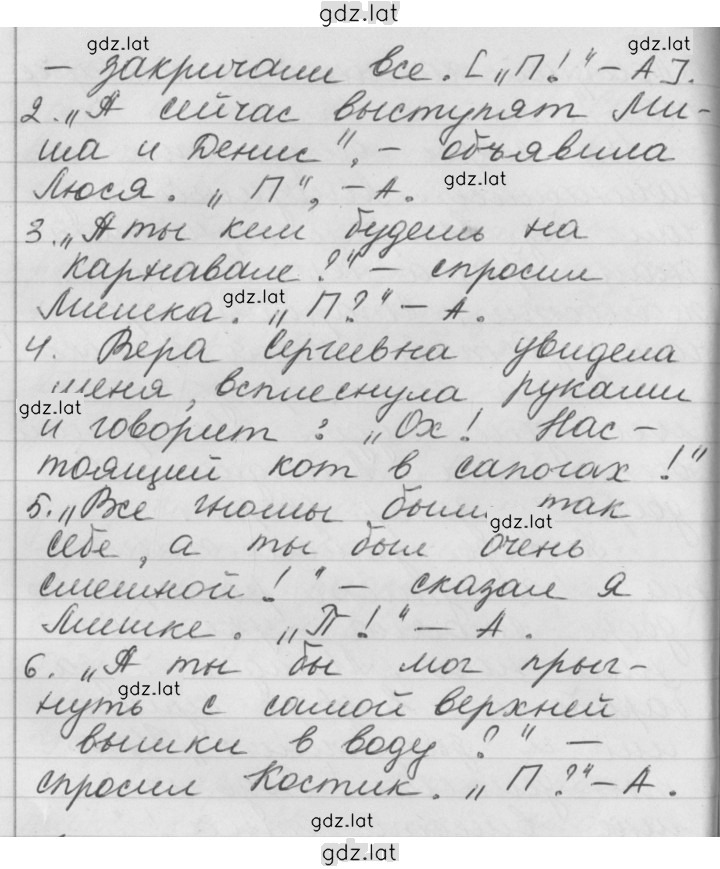 gdz.lat
gdz.lat gdz.lat
– закричали все. [„П!“ – А].
2. „А сейчас выступят Ми-
ша и Денис“, – объявила
Люся. „П“, – А. gdz.lat
3. „А ты кем будешь на
карнавале?“ – спросил
Мишка. gdz.lat „П?“ – А.
4. Вера Сергеевна увидела
меня, всплеснула руками
gdz.lat
и говорит: „Ох! Нас-
тоящий кот в сапогах!“
5. „Все гномы были так
gdz.lat
себе, а ты был очень
смешной!“ – сказал я
Мишке. „П!“ – А.
6. „А ты бы мог прыг-
gdz.lat
нуть с самой верхней
вышки в воду?“ –
спросил Костик. „П?“ – А.
gdz.lat
gdz.lat